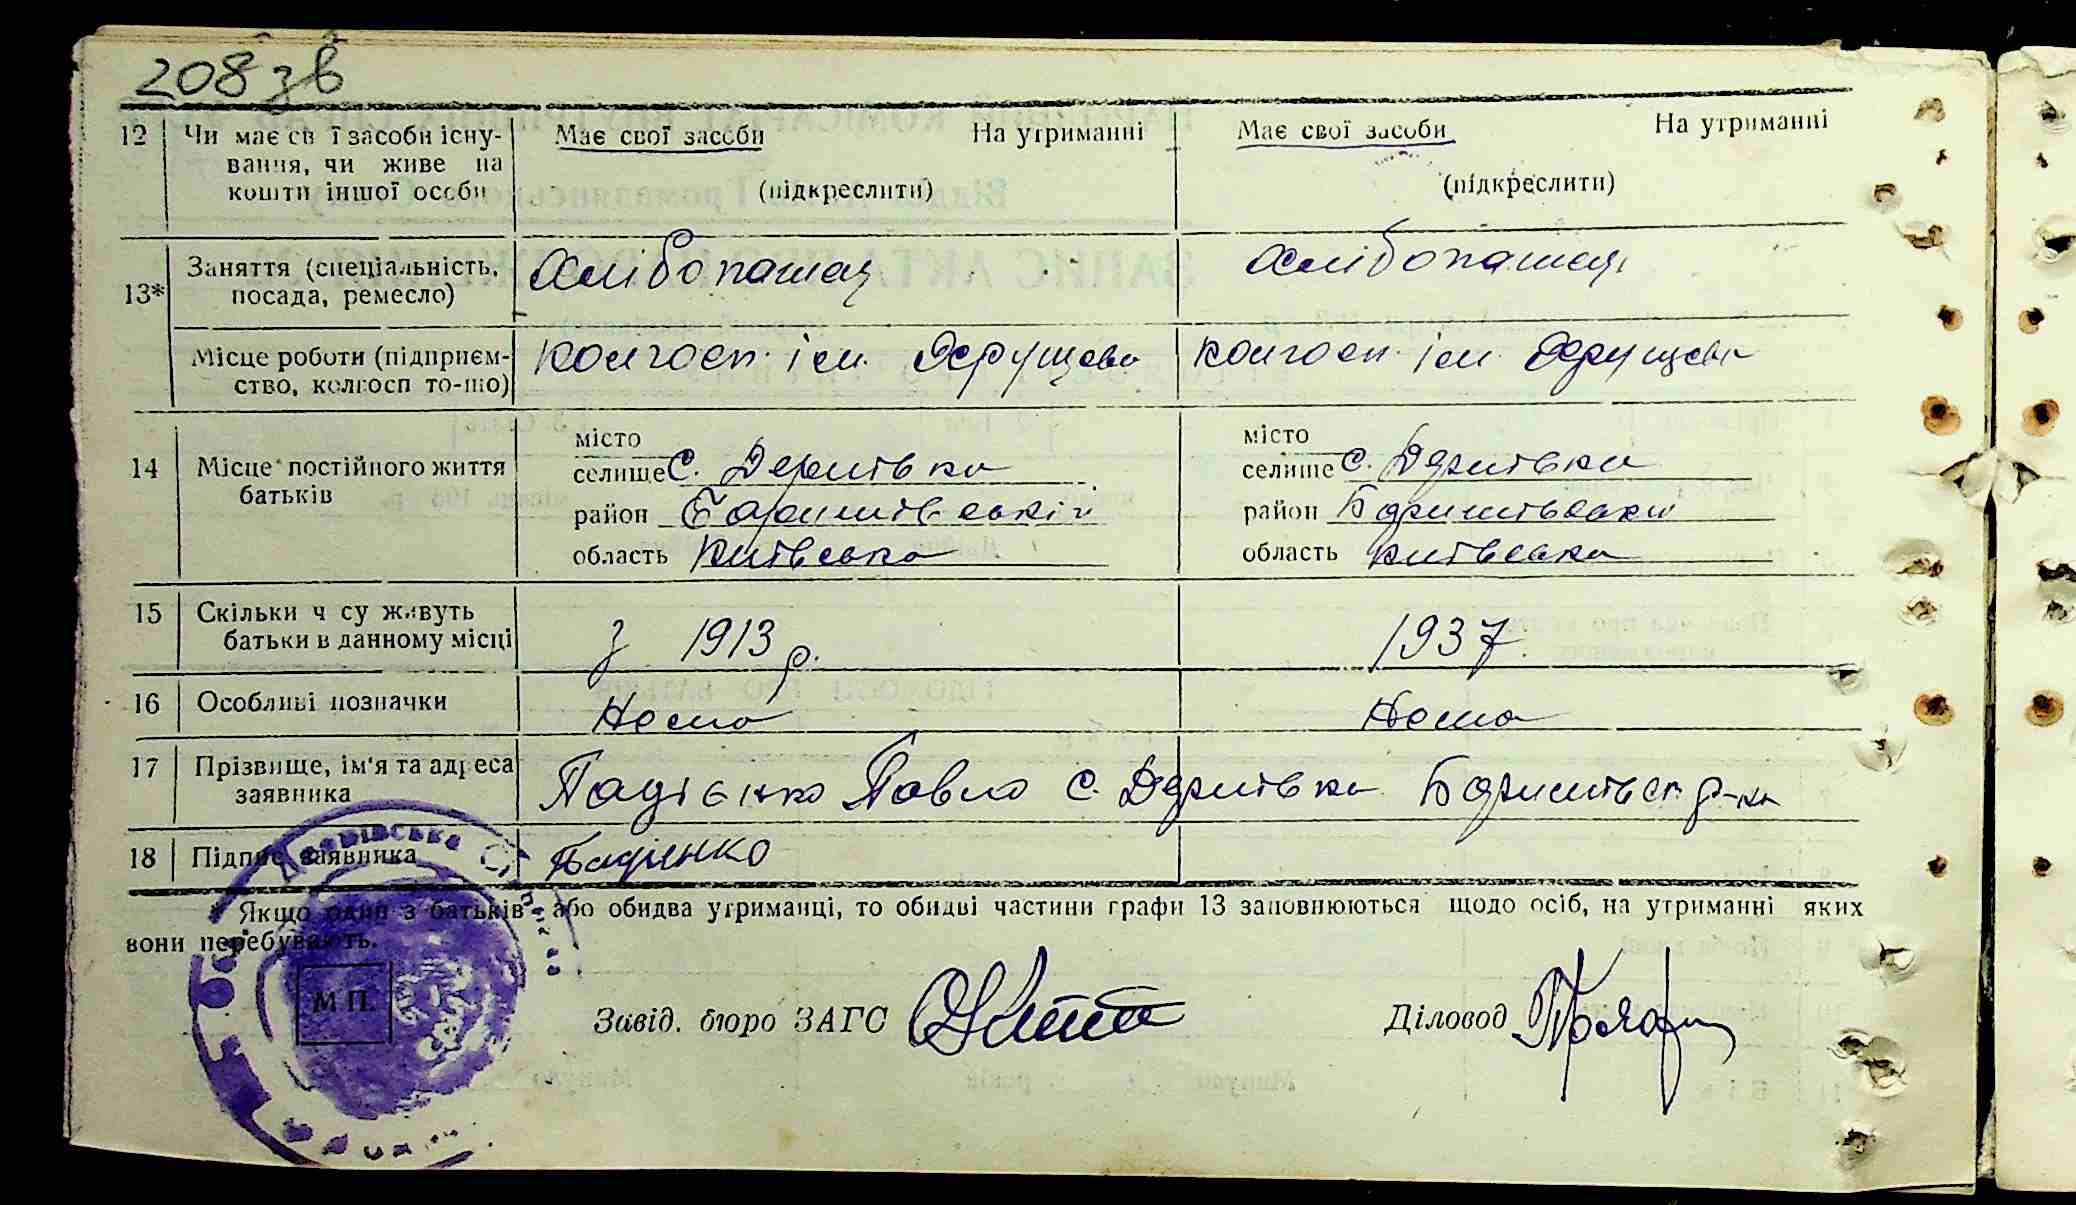 208 зв
12 Чи має св ї засоби існу- Має свої засоби На утриманні Має свої засоби На утриманні
вання, чи живе на
кошти іншої особи (підкреслити) (підкреслити)
13* Заняття (спеціальність, Хлібопашец Хлібопашец
посада, ремесло)
Місце роботи (підприєм- Колгосп ім. Хрущева Колгосп ім. Хрущева
ство, колгосп то-що)
14 Місце постійного життя
батьків
місто місто
селище с. Дернівка селище с. Дернівка
район Баришівський район Баришівський
область Київська область Київська
15 Скільки ч су живуть з 1913 р. 1937
батьки в данному місці
16 Особливі позначки Нема Нема
17 Прізвище, ім'я та адреса Павло с. Дернівка Баришівськ р-на
заявника
18 Підпис заявника
* Якщо один з батьків або обидва утриманці, то обидві частини графи 13 заповнюються щодо осіб, на утриманні яких
вони перебувають.
М П.
Завід. бюро ЗАГС Діловод